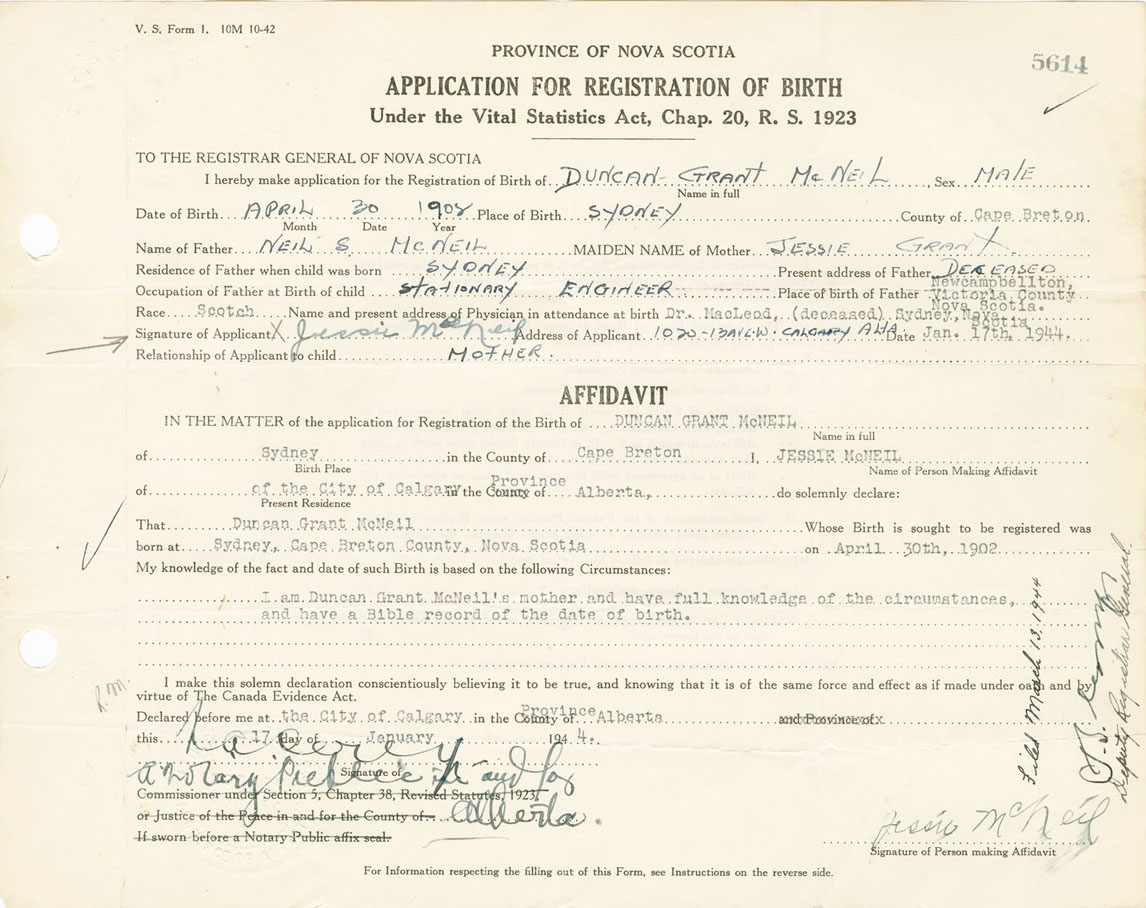 V. S. Form 1. 10M 10-42
PROVINCE OF NOVA SCOTIA
5614
APPLICATION FOR REGISTRATION OF BIRTH
Under the Vital Statistics Act, Chap. 20, R. S. 1923
TO THE REGISTRAR GENERAL OF NOVA SCOTIA
I hereby make application for the Registration of Birth of DUNCAN GRANT McNEIL Sex MALE
Name in full
Date of Birth APRIL 30 1902 Place of Birth SYDNEY County of Cape Breton
Month Date Year
Name of Father NEIL S McNEIL MAIDEN NAME of Mother JESSIE GRANT
Residence of Father when child was born SYDNEY Present address of Father DECEASED
Occupation of Father at Birth of child STATIONARY ENGINEER Place of birth of Father Newcampbellton, Victoria County Nova Scotia.
Race Scotch Name and present address of Physician in attendance at birth Dr. MacLeod, (deceased) Sydney, Nova Scotia
Signature of Applicant X Jessie McNeil Address of Applicant 1020-13 AVE. W. CALGARY ALTA Date Jan. 17th, 1944.
Relationship of Applicant to child MOTHER.
AFFIDAVIT
IN THE MATTER of the application for Registration of the Birth of DUNCAN GRANT McNEIL
Name in full
of Sydney in the County of Cape Breton I, JESSIE McNEIL
Birth Place Name of Person Making Affidavit
of of the City of Calgary in the County Province of Alberta, do solemnly declare:
Present Residence
That Duncan Grant McNeil Whose Birth is sought to be registered was
born at Sydney, Cape Breton County, Nova Scotia on April 30th, 1902.
My knowledge of the fact and date of such Birth is based on the following Circumstances:
I am Duncan Grant McNeil's mother and have full knowledge of the circumstances,
and have a Bible record of the date of birth.
I make this solemn declaration conscientiously believing it to be true, and knowing that it is of the same force and effect as if made under oath and by
virtue of The Canada Evidence Act.
Declared before me at the City of Calgary in the County Province of Alberta and Province of
this 17 day of January 1944.
A Notary Public in and for
Signature of
Commissioner under Section 5, Chapter 38, Revised Statutes, 1923,
or Justice of the Peace in and for the County of Alberta.
If sworn before a Notary Public affix seal.
Jessie McNeil
Signature of Person making Affidavit
For Information respecting the filling out of this Form, see Instructions on the reverse side.
Filed March 13, 1944
Deputy Registrar General.